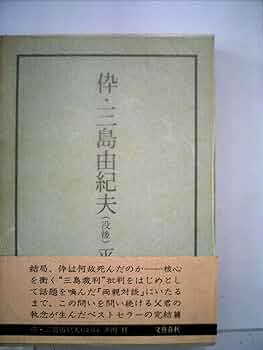 伜・三島由紀夫
(没後)
結局、伜は何故死んだのか――核心
を衝く“三島裁判”批判をはじめとし
て話題を喚んだ「両親対談」にいたる
まで、この問いを問い続ける父君の
執念が生んだベストセラーの完結編
文藝春秋